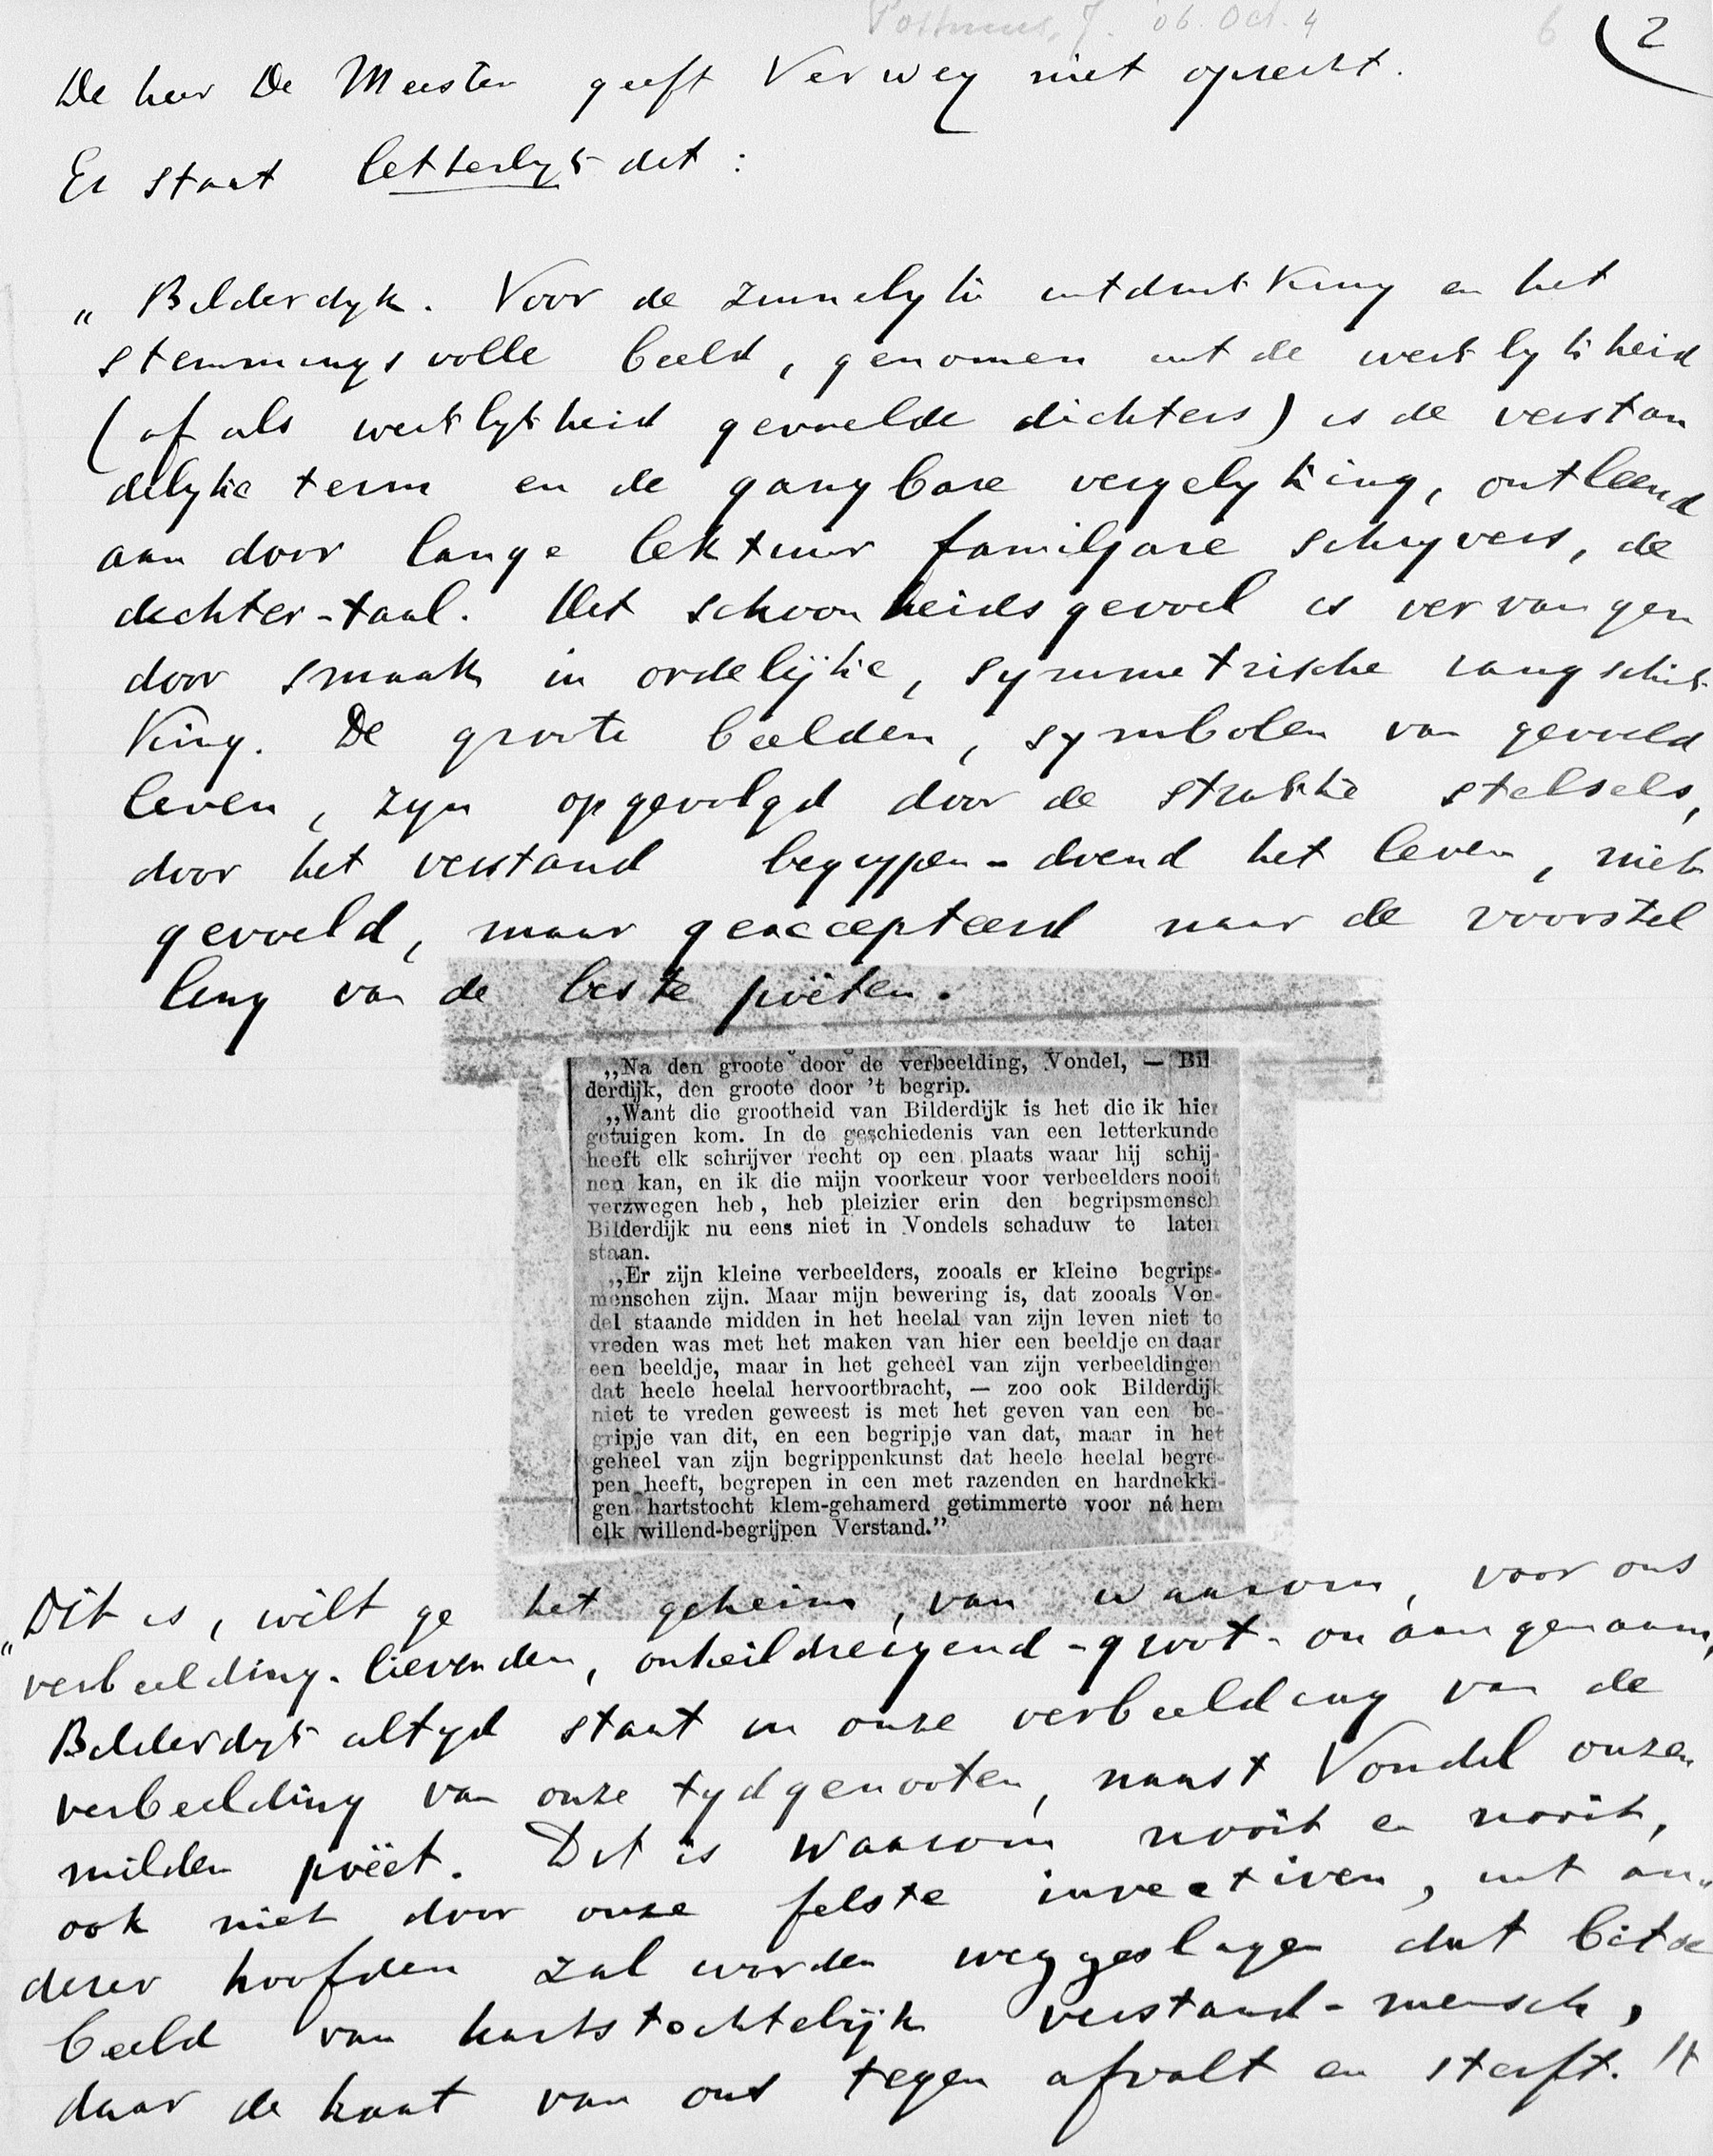 Postmus, J. '06. Oct. 4
6 2
De heer De Meester geeft Verwey niet oprecht.
Er staat letterlyk dit :
„ Bilderdyk. Voor de zinnelyke uitdrukking en het
stemmingsvolle beeld, genomen uit de werklykheid
(of als werklykheid gevoelde dichters) is de verstan
delyke term en de gangbare vergelyking, ontleend
aan door lange lektuur familjare schryvers, de
dichter-taal. Het schoonheidsgevoel is vervangen
door smaak in ordelijke, symmetrische rangschik-
king. De groote beelden, symbolen van gevoeld
leven, zyn opgevolgd door de strakke stelsels,
door het verstand begrypen-doend het leven, niet
gevoeld, maar geaccepteerd naar de voorstel
ling van de beste poëten.
„Na den groote door de verbeelding, Vondel, — Bil
derdijk, den groote door 't begrip.
„Want die grootheid van Bilderdijk is het die ik hier
getuigen kom. In de geschiedenis van een letterkunde
heeft elk schrijver recht op een plaats waar hij schij-
nen kan, en ik die mijn voorkeur voor verbeelders nooit
verzwegen heb, heb pleizier erin den begripsmensch
Bilderdijk nu eens niet in Vondels schaduw te laten
staan.
„Er zijn kleine verbeelders, zooals er kleine begrips-
menschen zijn. Maar mijn bewering is, dat zooals Von-
del staande midden in het heelal van zijn leven niet te
vreden was met het maken van hier een beeldje en daar
een beeldje, maar in het geheel van zijn verbeeldingen
dat heele heelal hervoortbracht, — zoo ook Bilderdijk
niet te vreden geweest is met het geven van een be-
gripje van dit, en een begripje van dat, maar in het
geheel van zijn begrippenkunst dat heele heelal begre-
pen heeft, begrepen in een met razenden en hardnekki-
gen hartstocht klem-gehamerd getimmerte voor ná hem
elk willend-begrijpen Verstand.”
„Dit is, wilt ge het geheim, van waarom, voor ons
verbeelding-lievenden, onheildreigend-groot-onaangenaam,
Bilderdyk altyd staat in onze verbeelding van de
verbeelding van onze tydgenooten, naast Vondel onzen
milden poëet. Dit is waarom nooit en nooit,
ook niet door onze felste invectiven, uit an„
derer hoofden zal worden weggeslagen dat bitse
beeld van hartstochtelijk verstand-mensch,
daar de haat van ons tegen afvalt en sterft. "